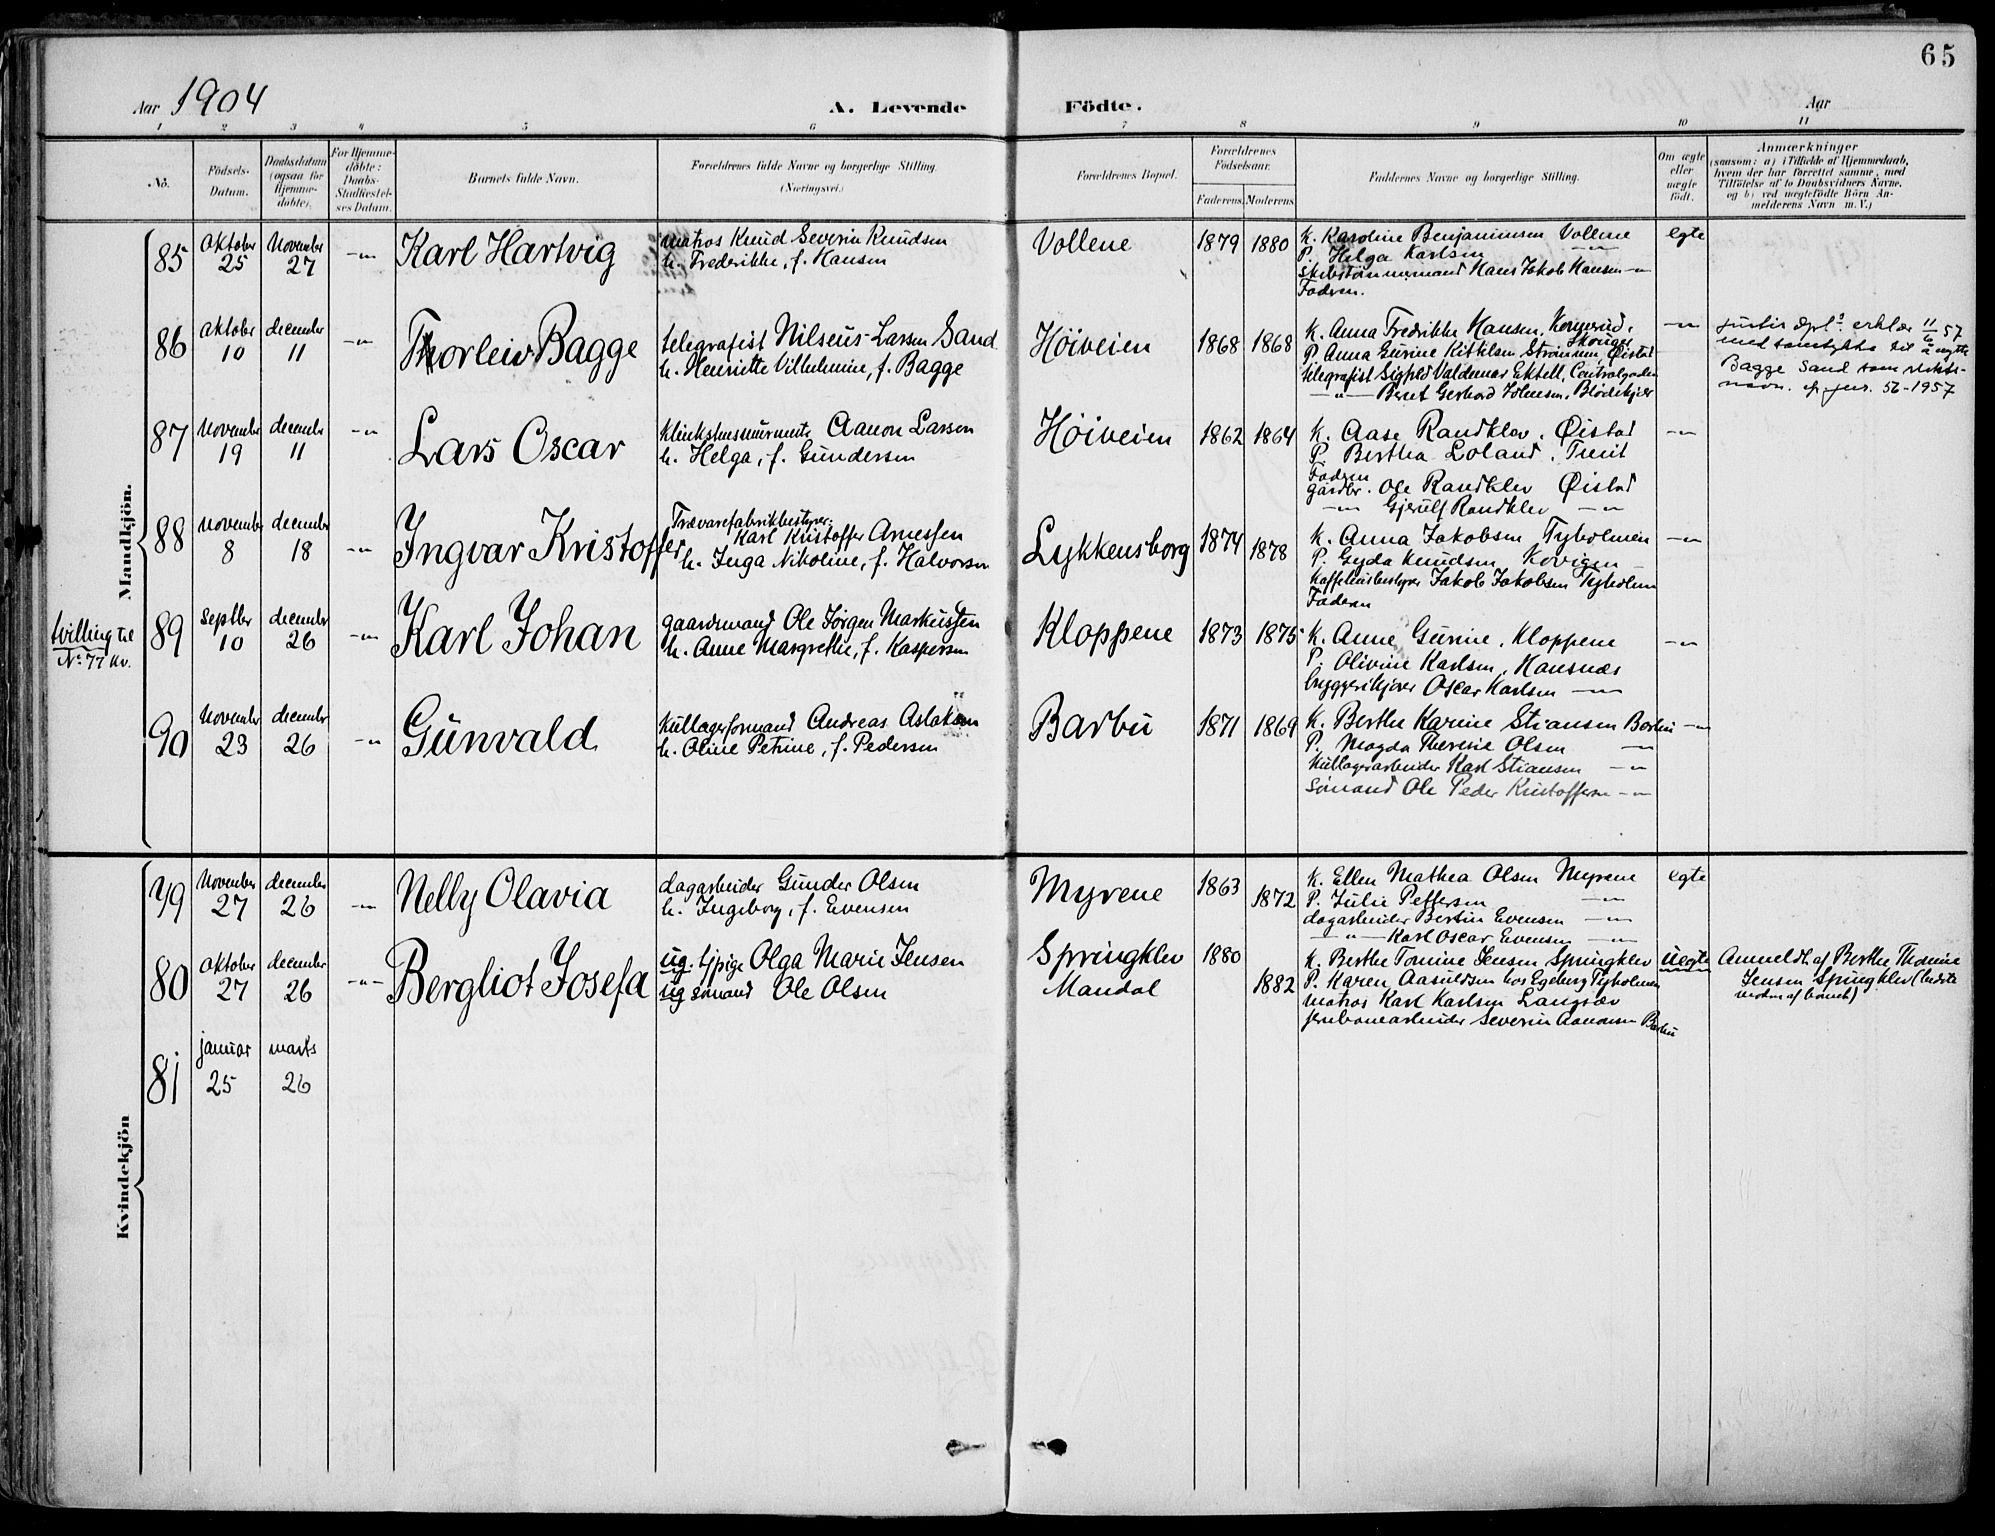 65
Aar 1904
A. Levende Födte.
Aar
1 2 3 4 5 6 7 8 9 10 11
No.
Födsels-Datum.
Daabsdatum (ogsaa for Hjemme-döbte).
For Hjemme-döbte: Daabs-Stadfæstel-ses Datum.
Barnets fulde Navn.
Forældrenes fulde Navne og borgerlige Stilling.
(Næringsvei.)
Forældrenes Bopæl.
Forældrenes Födselsaar.
Faderens. Moderens.
Faddernes Navne og borgerlige Stilling.
Om ægte eller uægte födt.
Anmærkninger
(saasom: a) i Tilfælde af Hjemmedaab, hvem der har forrettet samme, med Tilföielse af to Daabsvidners Navne, og b) ved uegtefödte Börn Anmelderens Navn m. V.)
Mandkjön.
85 Oktober 25 November 27 -"- Karl Hartvig
matros Knud Severin Knudsen
h. Frederikke, f. Hansen
Vollene 1879 1880
K. Karoline Benjaminsen Vollene
P. Helga Karlsen -"-
Skibstømmermand Hans Jakob Hansen -"-
Faderen.
egte
86 Oktober 10 december 11 -"- Thorleiv Bagge
telegrafist Nilseus Larsen Sand
h. Henriette Vilhelmine, f. Bagge
Höiveien 1868 1868
K. Anna Fredrikke Hansen, Kongerud, Skoger
P. Anna Gurine Kittilsen Strømmen, Øistad
telegrafist Sigfred Valdemar Ektell, Centralgaden
-"- Bernt Gerhard Johnsen, Blödekjær
-"-
11/6 57
med samtykke til å nytte
Bagge Sand som slekts-
navn. jf. jnr. 56-1957
87 November 19 december 11 -"- Lars Oscar
Klinkstensmurmester Aanon Larsen
h. Helga, f. Gundersen
Höiveien 1862 1864
K. Aase Randklev, Øistad
P. Bertha Loland, Tveit
Faderen
gårdbr. Ole Randklev Øistad
-"- Gjerulf Randklev -"-
-"-
88 November 8 december 18 -"- Ingvar Kristoffer
Trævarefabrikbestyrer
Karl Kristoffer Arnessen
h. Inga Nikoline, f. Halvorsen
Lykkensborg 1874 1878
K. Anna Jakobsen Tyholmen
P. Gyda Knudsen Kovigen
Kaffehusbestyrer Jakob Jakobsen Tyholmen
Faderen
-"-
tvilling til
No. 77 Kv.
89 Septber 10 december 26 -"- Karl Johan
gaardmand Ole Jørgen Markussen
h. Anne Margrethe, f. Kaspersen
Kloppene 1873 1875
K. Anne Gurine, Kloppene
P. Olivine Karlsen, Hansnæs
bryggerikjører Oscar Karlsen -"-
-"-
90 November 23 december 26 -"- Gunvald
Kullagerformand Andreas Aslaksen
h. Oline Petrine, f. Pedersen
Barbu 1871 1869
K. Berthe Karine Stiansen Barbu
P. Magda Therese Olsen -"-
Kullagerarbeider Karl Stiansen -"-
Sømand Ole Peder Kristoffersen -"-
-"-
Kvindekjön
79 November 27 december 26 -"- Nelly Olavia
dagarbeider Gunder Olsen
h. Ingeborg, f. Evensen
Myrene 1863 1872
K. Ellen Mathea Olsen Myrene
P. Julie Pettersen -"-
dagarbeider Bertin Evensen -"-
-"- Karl Oscar Evensen -"-
egte
80 Oktober 27 december 26 -"- Bergliot Josefa
ug. tjpige Olga Marie Jensen
ug sømand Ole Olsen
Springklev
Mandal
1880 1882
K. Berthe Tomine Jensen Springklev
P. Karen Aasuldsen hos Egeberg Tyholmen
matros Karl Karlsen Langsæv
jernbanearbeider Severin Aanonsen Barbu
Uegte
Anmeldt af Berthe Thomine
Jensen Springklev
81 januar 25 marts 26